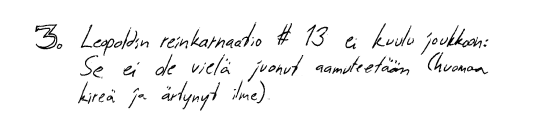 3. Leopoldin reinkarnaatio # 13 ei kuulu joukkoon:
Se ei ole vielä juonut aamuteetään (huomaa
kireä ja ärtynyt ilme).